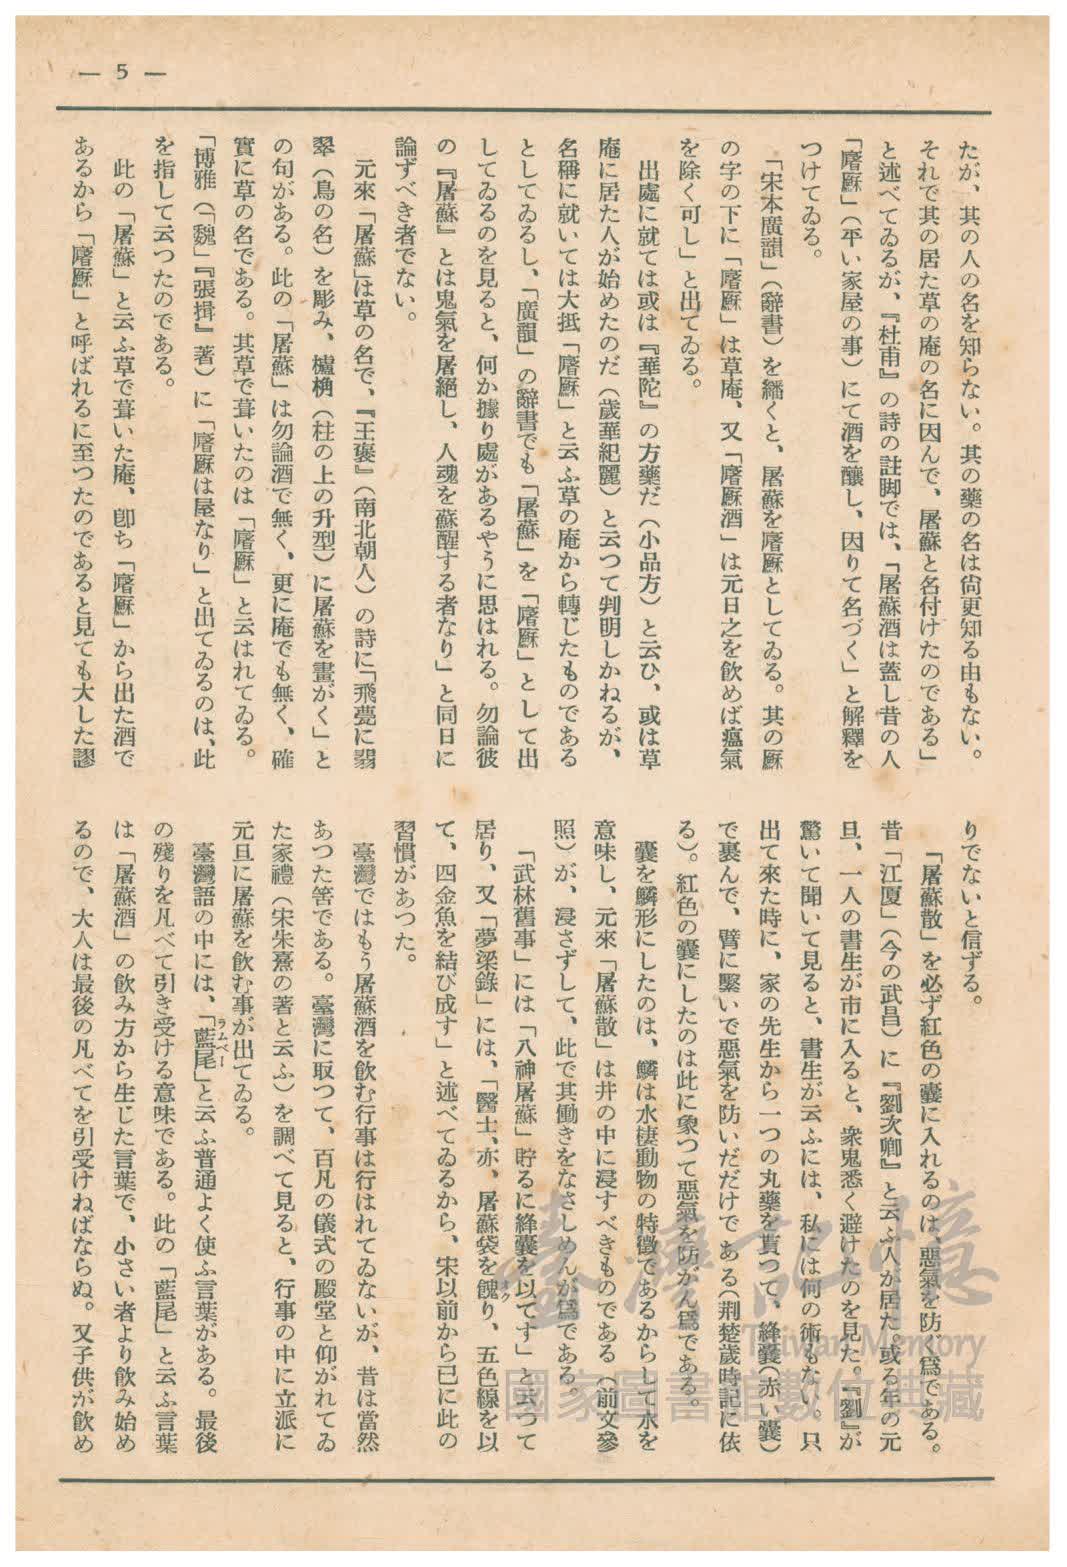 — 5 —
たが、其の人の名を知らない。其の藥の名は尙更知る由もない。
それで其の居た草の庵の名に因んで、屠蘇と名付けたのである」
と述べてゐるが、『杜甫』の詩の註脚では、「屠蘇酒は蓋し昔の人
「廜㢝」（平い家屋の事）にて酒を釀し、因りて名づく」と解釋を
つけてゐる。
「宋本廣韻」（辭書）を繙くと、屠蘇を廜㢝としてゐる。其の㢝
の字の下に「廜㢝」は草庵、又「廜㢝酒」は元日之を飮めば瘟氣
を除く可し」と出てゐる。
出處に就ては或は『華陀』の方藥だ（小品方）と云ひ、或は草
庵に居た人が始めたのだ（歲華紀麗）と云つて判明しかねるが、
名稱に就いては大抵「廜㢝」と云ふ草の庵から轉じたものである
としてゐるし、「廣韻」の辭書でも「屠蘇」を「廜㢝」として出
してゐるのを見ると、何か據り處があるやうに思はれる。勿論彼
の『屠蘇』とは鬼氣を屠絕し、人魂を蘇醒する者なり」と同日に
論ずべき者でない。
元來「屠蘇」は草の名で、『王褒』（南北朝人）の詩に「飛甍に翡
翠（鳥の名）を彫み、櫨桷（柱の上の升型）に屠蘇を畫がく」と
の句がある。此の「屠蘇」は勿論酒で無く、更に庵でも無く、確
實に草の名である。其草で葺いたのは「廜㢝」と云はれてゐる。
「博雅（「魏」『張揖』著）に「廜㢝は屋なり」と出てゐるのは、此
を指して云つたのである。
此の「屠蘇」と云ふ草で葺いた庵、卽ち「廜㢝」から出た酒で
あるから「廜㢝」と呼ばれるに至つたのであると見ても大した謬
りでないと信ずる。
「屠蘇散」を必ず紅色の囊に入れるのは、惡氣を防ぐ爲である。
昔「江厦」（今の武昌）に『劉次卿』と云ふ人が居た。或る年の元
旦、一人の書生が市に入ると、衆鬼悉く避けたのを見た。『劉』が
驚いて聞いて見ると、書生が云ふには、私には何の術もない。只
出て來た時に、家の先生から一つの丸藥を貰つて、絳囊（赤い囊）
で裹んで、臂に繫いで惡氣を防いだだけである（荆楚歲時記に依
る）。紅色の囊にしたのは此に象つて惡氣を防がん爲である。
囊を鱗形にしたのは、鱗は水棲動物の特徵であるからして水を
意味し、元來「屠蘇散」は井の中に浸すべきものである（前文參
照）が、浸さずして、此で其働きをなさしめんが爲である
「武林舊事」には「八神屠蘇」貯るに絳囊を以てす」と云つて
居り、又「夢梁錄」には、「醫士、亦、屠蘇袋を餽り、五色線を以
て、四金魚を結び成す」と述べてゐるから、宋以前から已に此の
習慣があつた。
臺灣ではもう屠蘇酒を飮む行事は行はれてゐないが、昔は當然
あつた筈である。臺灣に取つて、百凡の儀式の殿堂と仰がれてゐ
た家禮（宋朱熹の著と云ふ）を調べて見ると、行事の中に立派に
元旦に屠蘇を飮む事が出てゐる。
臺灣語の中には、「藍尾」と云ふ普通よく使ふ言葉がある。最後
の殘りを凡べて引き受ける意味である。此の「藍尾」と云ふ言葉
は「屠蘇酒」の飮み方から生じた言葉で、小さい者より飮み始め
るので、大人は最後の凡べてを引受けねばならぬ。又子供が飮め
臺灣記憶
Taiwan Memory
國家圖書館數位典藏